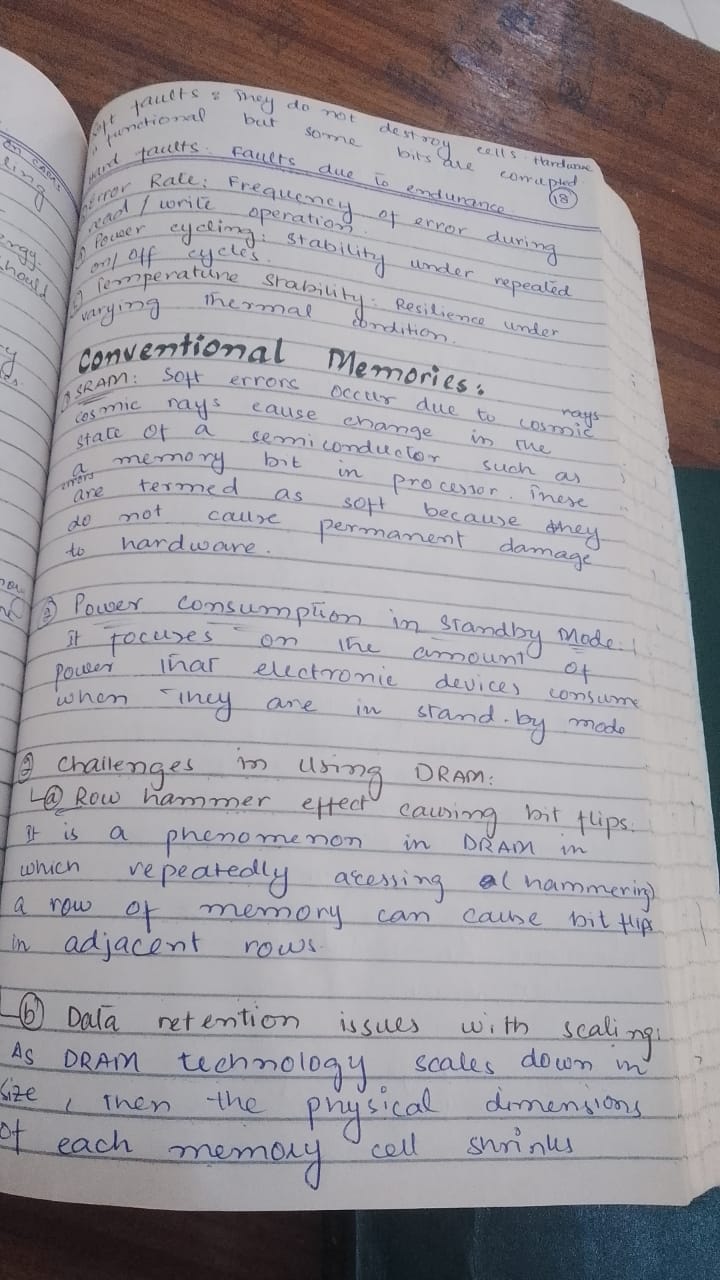 soft faults: They do not destroy cells. Hardware
functional but some bits are corrupted.
Hard faults. Faults due to endurance
18
Error Rate: Frequency of error during
read / write operation.
Power cycling: stability under repeated
on/off cycles.
Temperature stability: Resilience under
varying thermal condition.
Conventional Memories:
SRAM: Soft errors occur due to cosmic rays
cosmic rays cause change in the
state of a semiconductor such as
a memory bit in processor. These
errors are termed as soft because they
do not cause permanent damage
to hardware.
② Power consumption in standby Mode:
It focuses on the amount of
power that electronic devices consume
when they are in stand-by mode
② Challenges in using DRAM:
ⓐ Row hammer effect causing bit flips.
It is a phenomenon in DRAM in
which repeatedly acessing (hammering)
a row of memory can cause bit flips
in adjacent rows.
ⓑ Data retention issues with scaling:
As DRAM technology scales down in
size, then the physical dimensions
of each memory cell shrinks